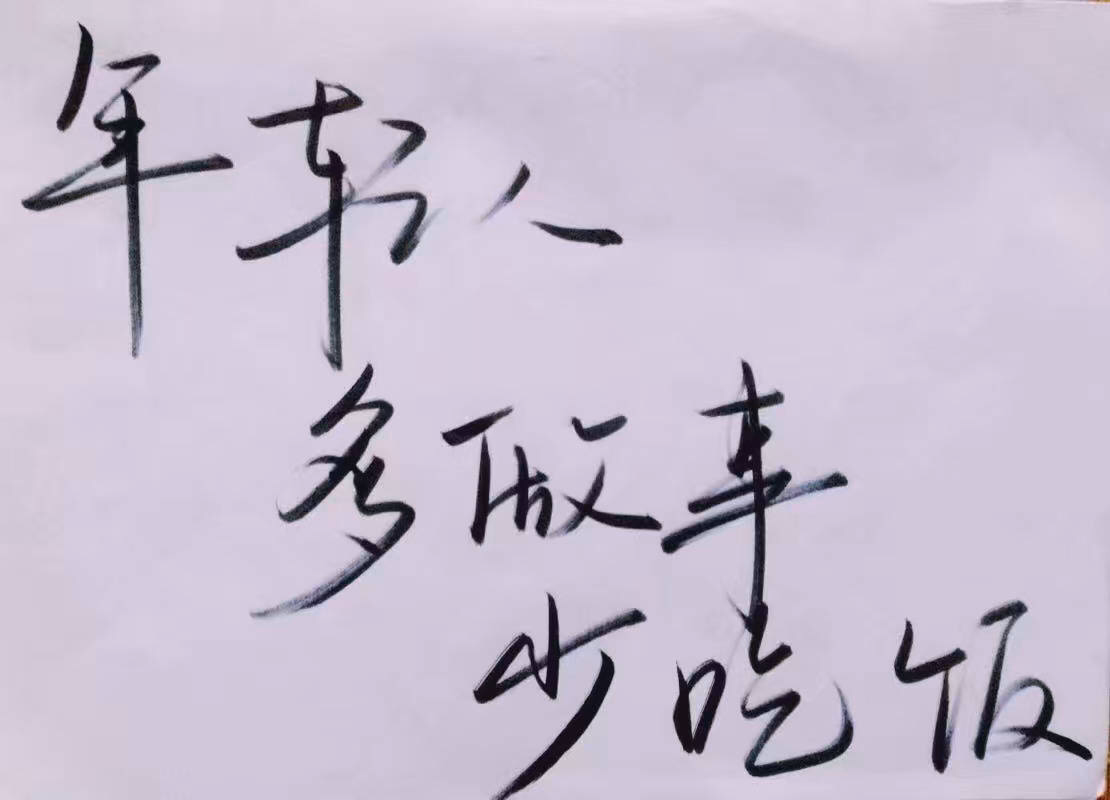 年轻人
多做事
少吃饭